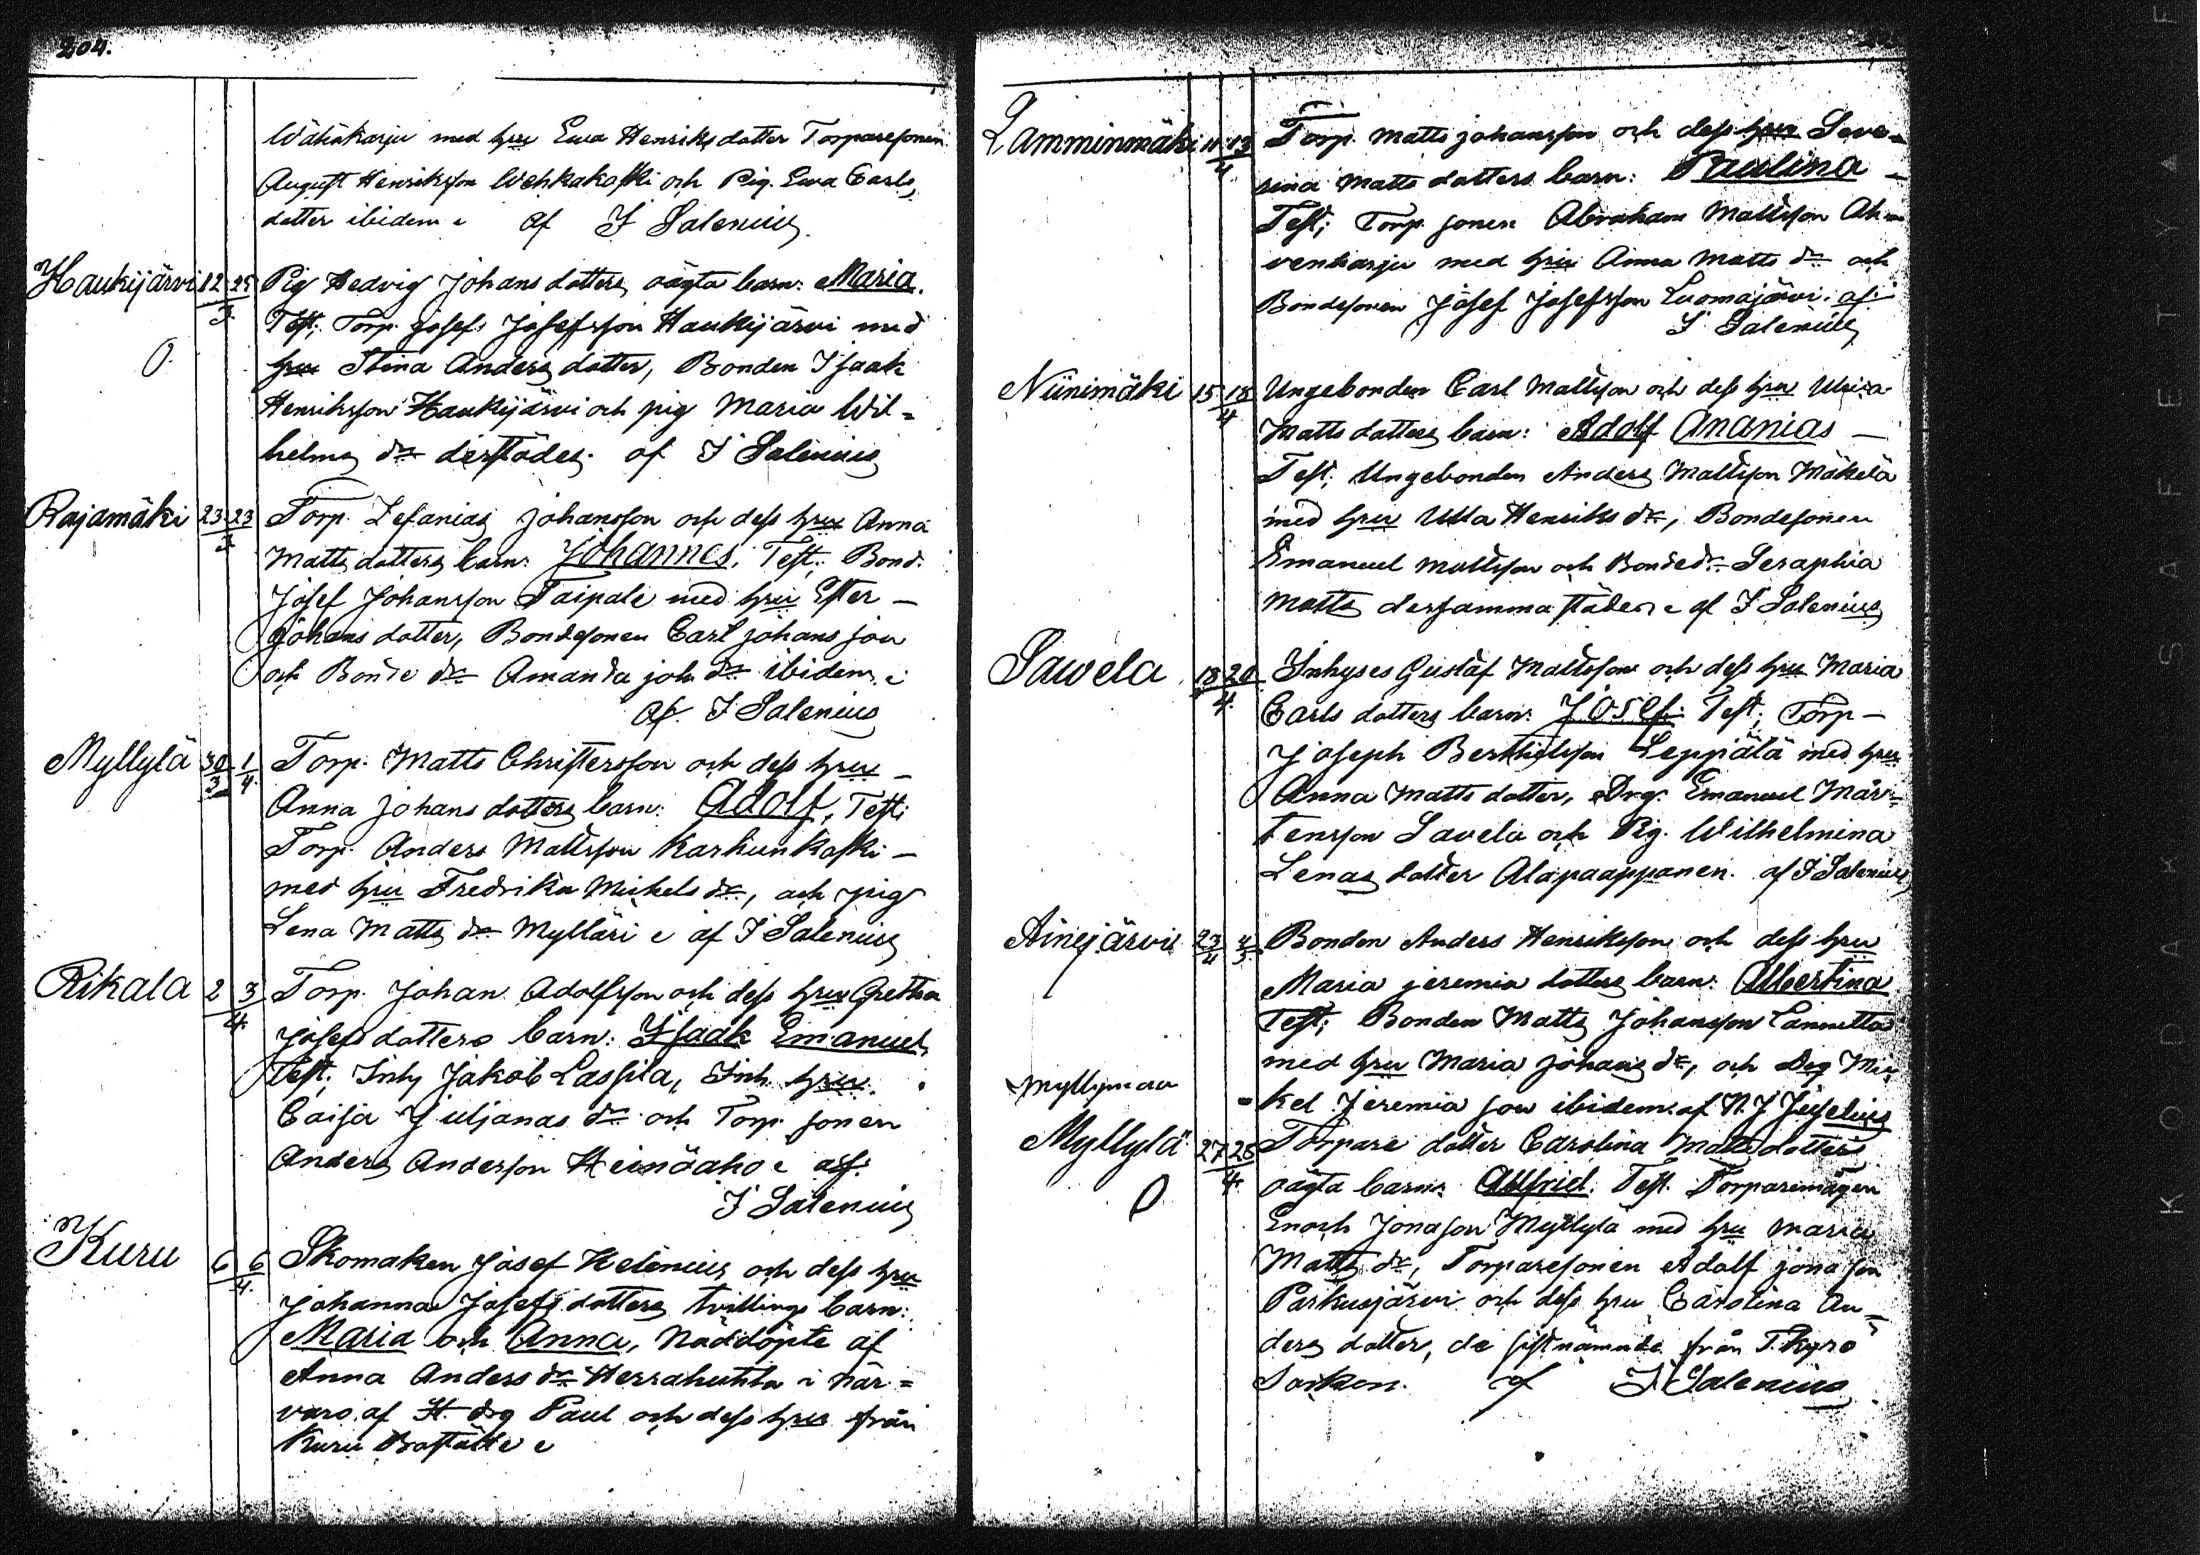 204.
Wähäkarju med hru Ewa Henriks dotter Torparesonen
August Henriksson Wehkakoski och Pig. Ewa Carls
dotter ibidem af I Salenius
Haukijärvi 12 25/3 Pig Hedvig Johans dotters oägta barn: Maria.
Test; Torp. Josef Josefsson Haukijärvi med
O hru Stina Anders dotter, Bonden Isaak
Henriksson Haukijärvi och pig Maria Wil=
helms dr derstädes af I Salenius
Rajamäki 23 23/3 Torp. Zefanias Johansson och dess hru Anna
Matts dotters barn: Johannes. Test; Bond.
Josef Johansson Taipale med hru Ester –
Johans dotter, Bondesonen Carl Johansson
och Bonde dr Amanda joh dr ibidem
af I Salenius
Myllylä 30/3 1/4 Torp. Matts Christersson och dess hru –
Anna Johans dotters barn: Adolf, Test;
Torp. Anders Mattsson Karhunkoski –
med hru Fredrika Mickels dr, och pig
Lena Matts dr Mylläri af I Salenius
Rikala 2 3/4 Torp. Johan Adolfsson och dess hru Gretha
Josefs dotters barn: Isaak Emanuel,
Test; Inhy Jakob Lassila, Inh hru
Caisa Juljanas dr och Torp. sonen
Anders Anderson Heinäaho af
I Salenius
Kuru 6 6/4 Skomakaren Josef Helenius och dess hru
Johanna Josefs dotters tvillings barn:
Maria och Anna, Nöddöpte af
Anna Anders dr Herrahuhta i när=
varo af St. drg Paul och dess hru från
Kuru Boställe
Lamminmäki 11 13/4 Torp. Matts Johansson och dess hru Seve=
rina Matts dotters barn: Paulina –
Test; Torp. sonen Abraham Mattsson Ah=
venharju med hru Anna Matts dr och
Bondesonen Josef Josefsson Luomajärvi. af
I Salenius
Niinimäki 15 18/4 Ungebonden Carl Mattsson och dess hru Ulrica
Matts dotters barn: Adolf Ananias –
Test; Ungebonden Anders Mattsson Mäkelä
med hru Ulla Henriks dr, Bondesonen
Emanuel Mattsson och Bonde dr Seraphia
Matts dersammastädes af I Salenius
Sawela 18 20/4 Inhyses Gustaf Mattsson och dess hru Maria
Carls dotters barn: Josef. Test; Torp –
Joseph Berthelsson Leppälä med hru
Anna Matts dotter, Drg. Emanuel Mår=
tensson Savela och Pig. Wilhelmina
Lenas dotter Alapaappanen. af I Salenius
Ainesjärvi 23/4 4/5 Bonden Anders Henriksson och dess hru
Maria Jeremia dotters barn: Albertina
Test; Bonden Matts Johansson Lannetta
med hru Maria Johans dr, och Drg Mic
kel Jeremia son ibidem. af N. J Juselius
Myllymaa
Myllylä 27 28/4 Torpare dotter Carolina Matts dotters
oägta barn: Allfrid. Test. Torparemågen
O Enoch Jonasson Myllylä med hru Maria
Matts dr, Torparesonen Adolf Jonasson
Parkusjärvi och dess hru Carolina An=
ders dotter, de sistnämnde från T. Kyro
Socken. af I Salenius
KODAK SAFETY A F